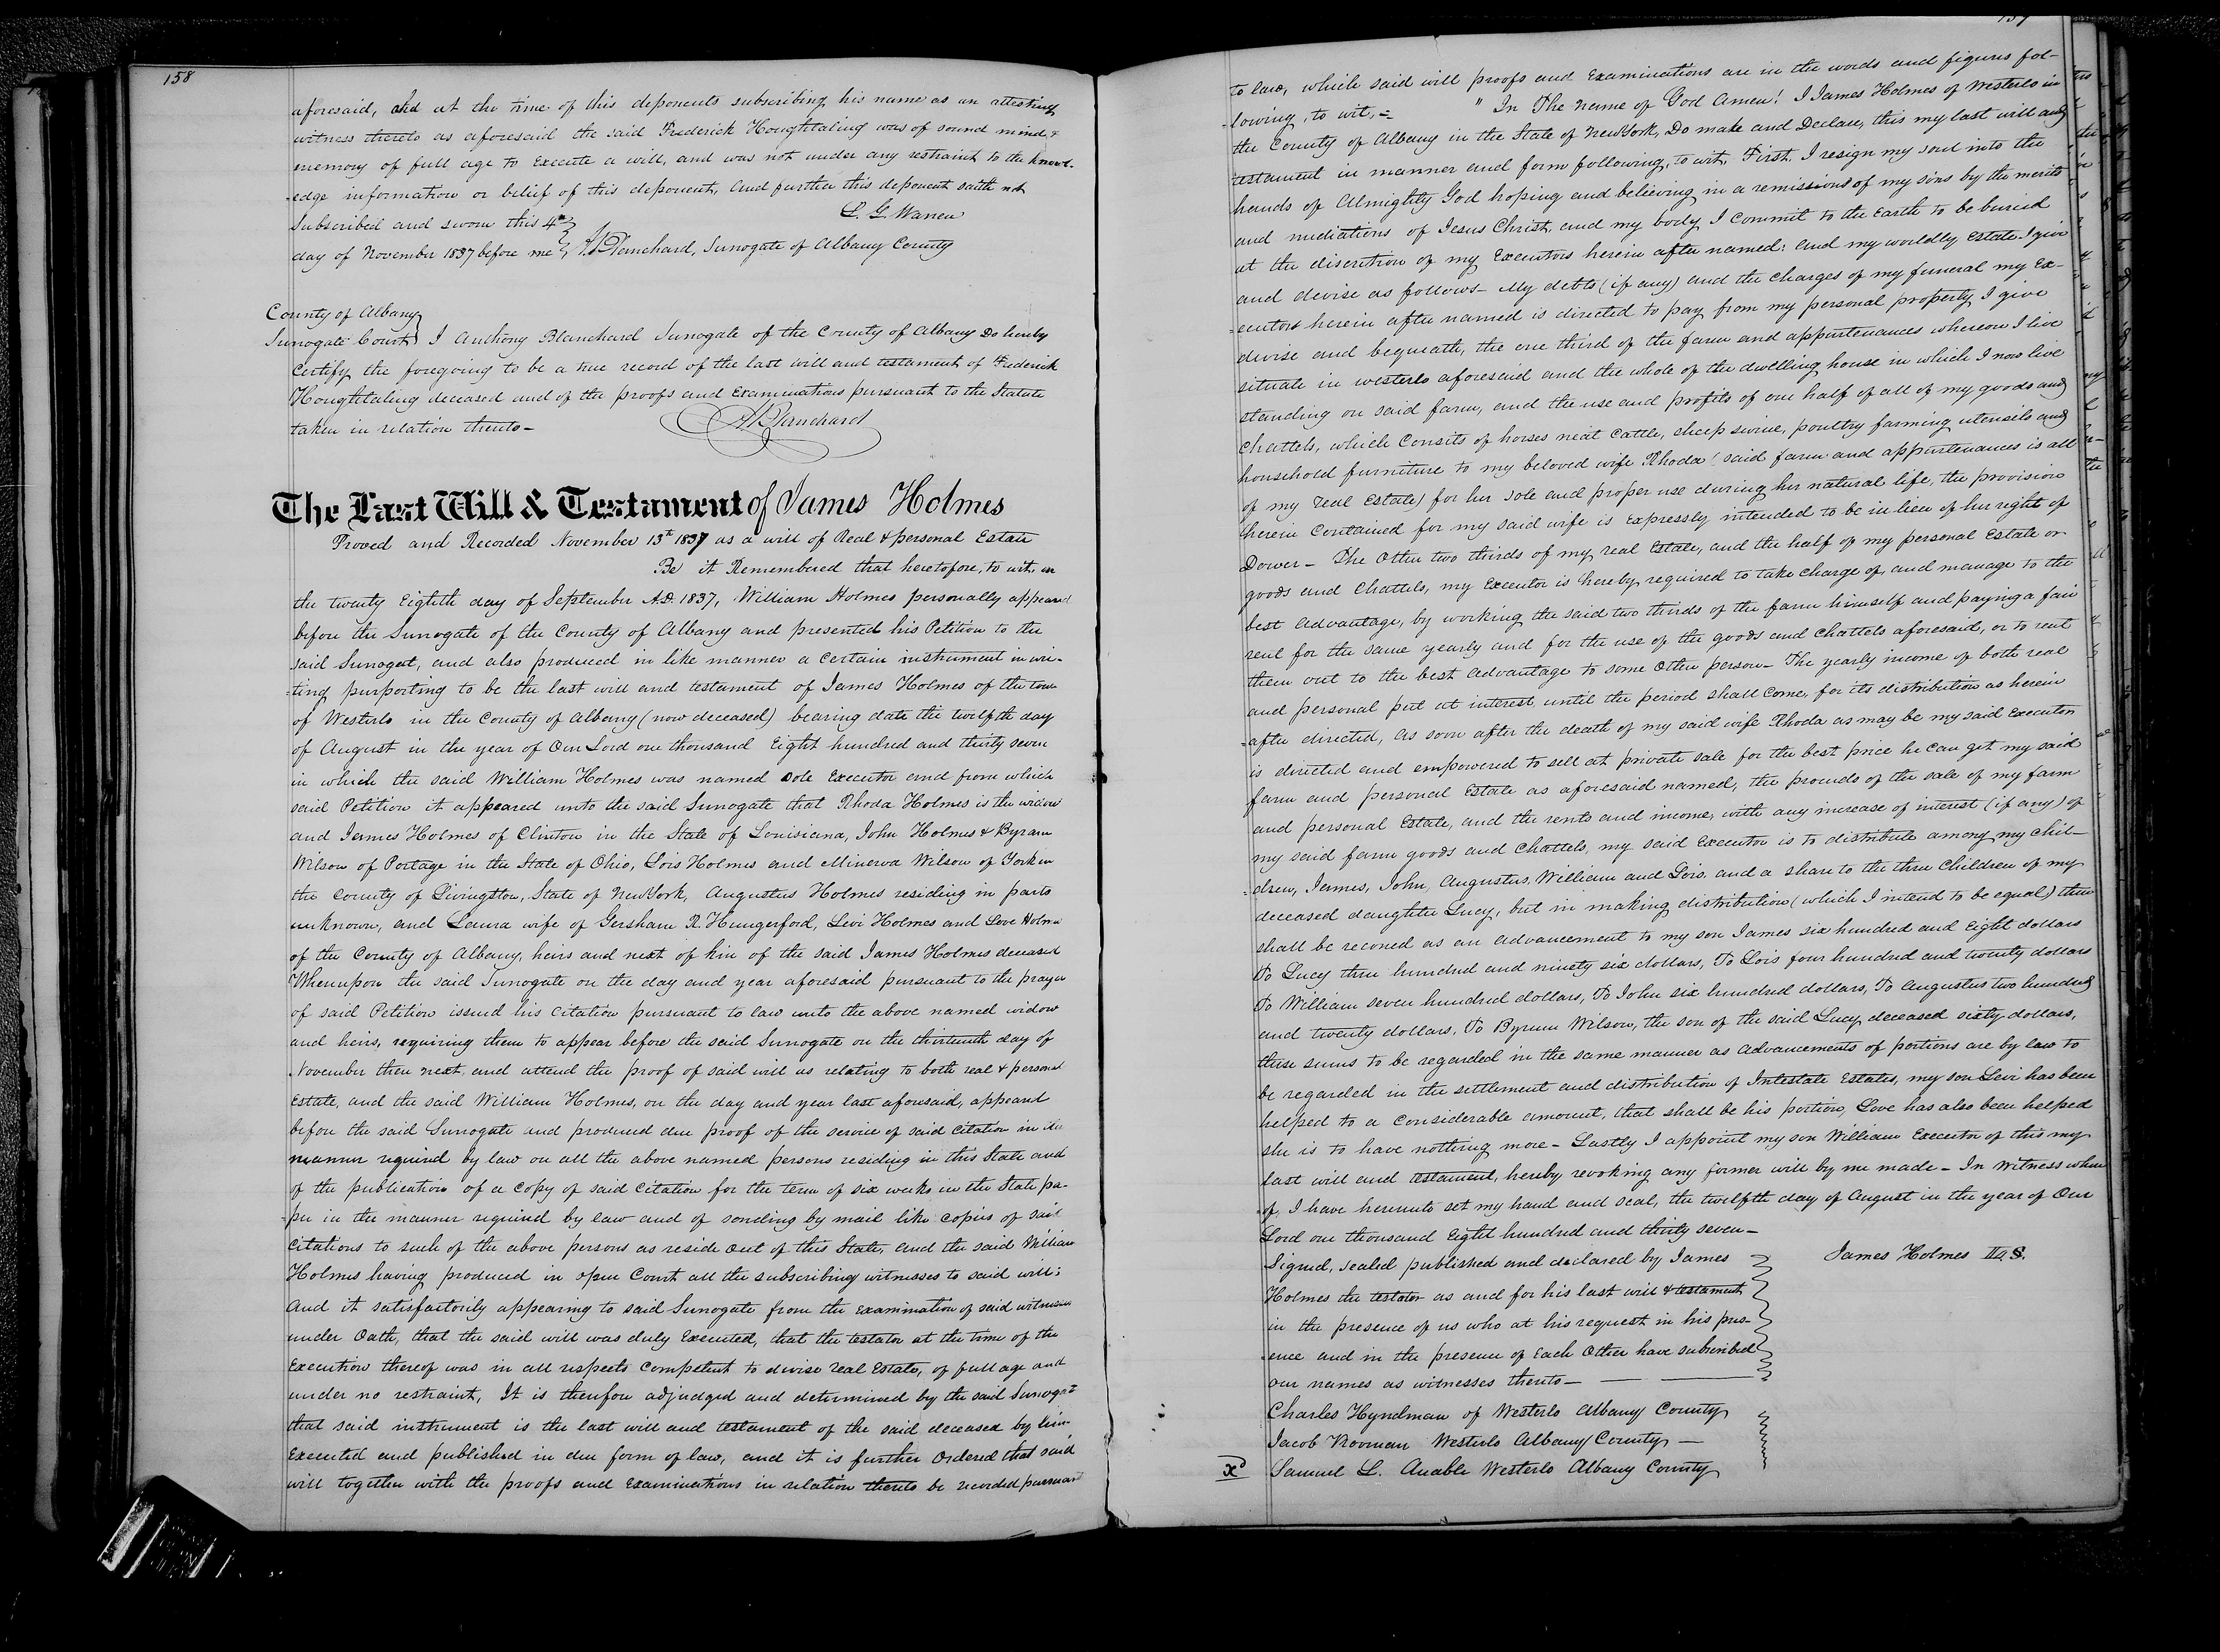 158
aforesaid, and at the time of this deponents subscribing his name as an attesting
witness thereto as aforesaid the said Frederick Houghtaling was of sound mind, &
memory of full age to Execute a will, and was not under any restraint to the knowl-
-edge information or belief of this deponent, and further this deponent saith not
Subscribed and sworn this 4th L. G. Warren
day of November 1837 before me A. Blanchard, Surrogate of Albany County
County of Albany
Surrogate Court I Anthony Blanchard Surrogate of the County of Albany Do hereby
Certify the foregoing to be a true record of the last will and testament of Frederick
Houghtaling deceased and of the proofs and Examinations pursuant to the Statute
taken in relation thereto- A Blanchard
The Last Will & Testament of James Holmes
Proved and Recorded November 13th 1837 as a will of Real & personal Estate
Be it Remembered that heretofore, to wit, on
the twenty Eighth day of September A.D. 1837, William Holmes personally appeared
before the Surrogate of the County of Albany and presented his Petition to the
said Surrogate, and also produced in like manner a certain instrument in wri-
=ting purporting to be the last will and testament of James Holmes of the town
of Westerlo in the County of Albany (now deceased) bearing date the twelfth day
of August in the year of Our Lord one thousand Eight hundred and thirty seven
in which the said William Holmes was named sole Executor and from which
said Petition it appeared unto the said Surrogate that Rhoda Holmes is the widow
and James Holmes of Clinton in the State of Louisiana, John Holmes & Byram
Wilson of Portage in the State of Ohio, Lois Holmes and Minerva Wilson of York in
the County of Livingston, State of New York, Augustus Holmes residing in parts
unknown, and Laura wife of Gersham R. Hungerford, Levi Holmes and Love Holmes
of the County of Albany, heirs and next of kin of the said James Holmes deceased
Whereupon the said Surrogate on the day and year aforesaid pursuant to the prayer
of said Petition issued his citation pursuant to law unto the above named widow
and heirs, requiring them to appear before the said Surrogate on the thirteenth day of
November then next, and attend the proof of said will as relating to both real & personal
Estate, and the said William Holmes, on the day and year last aforesaid, appeared
before the said Surrogate and produced due proof of the service of said citation in the
manner required by law on all the above named persons residing in this State and
of the publication of a copy of said citation for the term of six weeks in the State pa-
-per in the manner required by law and of sending by mail like copies of said
Citations to such of the above persons as reside out of this State, and the said William
Holmes having produced in open Court all the subscribing witnesses to said will;
And it satisfactorily appearing to said Surrogate from the Examination of said witnesses
under Oath, that the said will was duly Executed, that the testator at the time of the
Execution thereof was in all respects competent to devise real Estate, of full age and
under no restraint, It is therefore adjudged and determined by the said Surrogate
that said instrument is the last will and testament of the said deceased by him
Executed and published in due form of law, and it is further Ordered that said
will together with the proofs and Examinations in relation thereto be recorded pursuant
to law, which said will proofs and Examinations are in the words and figures fol-
-lowing, to wit,= "In The name of God Amen! I James Holmes of Westerlo in
the County of Albany in the State of New York, Do make and Declare, this my last will and
testament in manner and form following, to wit, First, I resign my soul into the
hands of Almighty God hoping and believing in a remission of my sins by the merits
and mediations of Jesus Christ, and my body I commit to the Earth to be buried
at the discretion of my Executors herein after named: and my worldly Estate I give
and devise as follows- My debts (if any) and the charges of my funeral my Ex-
=ecutors herein after named is directed to pay from my personal property, I give
devise and bequeath, the one third of the farm and appurtenances whereon I live
situate in Westerlo aforesaid and the whole of the dwelling house in which I now live
standing on said farm, and the use and profits of one half of all of my goods and
Chattels, which Consits of horses neat Cattle, sheep swine, poultry farming utensils and
household furniture to my beloved wife Rhoda (said farm and appurtenances is all
of my real Estate) for her sole and proper use during her natural life, the provision
herein Contained for my said wife is expressly intended to be in lieu of her right of
Dower- The Other two thirds of my real Estate, and the half of my personal Estate or
goods and Chattels, my Executor is hereby required to take charge of, and manage to the
best Advantage, by working the said two thirds of the farm himself and paying a fair
rent for the same yearly and for the use of the goods and chattels aforesaid, or to rent
them out to the best advantage to some Other person- The yearly income of both real
and personal put at interest until the period shall Come, for its distribution as herein
=after directed, as soon after the death of my said wife Rhoda as may be my said Executor
is directed and empowered to sell at private sale for the best price he can get my said
farm and personal Estate as aforesaid named, the proceeds of the sale of my farm
and personal Estate, and the rents and income, with any increase of interest (if any) of
my said farm goods and chattels, my said Executor is to distribute among my chil-
=dren, James, John, Augustus, William and Lois, and a share to the three children of my
deceased daughter Lucy, but in making distribution (which I intend to be equal) there
shall be reconed as an advancement to my son James six hundred and Eight dollars
To Lucy three hundred and ninety six dollars, To Lois four hundred and twenty dollars
To William seven hundred dollars, To John six hundred dollars, To Augustus two hundred
and twenty dollars, To Byrum Wilson, the son of the said Lucy, deceased sixty dollars,
these sums to be regarded in the same manner as Advancements of portions are by law to
be regarded in the settlement and distribution of Intestate Estates, my son Levi has been
helped to a considerable amount, that shall be his portion, Love has also been helped
she is to have nothing more- Lastly I appoint my son William Executor of this my
last will and testament, hereby revoking any former will by me made- In Witness where
-of, I have hereunto set my hand and seal, the twelfth day of August in the year of Our
Lord one thousand Eight hundred and thirty seven-
Signed, sealed published and declared by James James Holmes
Holmes the testator as and for his last will & testament
in the presence of us who at his request in his pres-
-ence and in the presence of Each Other have subscribed
our names as witnesses thereto-
Charles Hyndman of Westerlo Albany County
Jacob Vrooman Westerlo Albany County-
Samuel L. Anable Westerlo Albany County